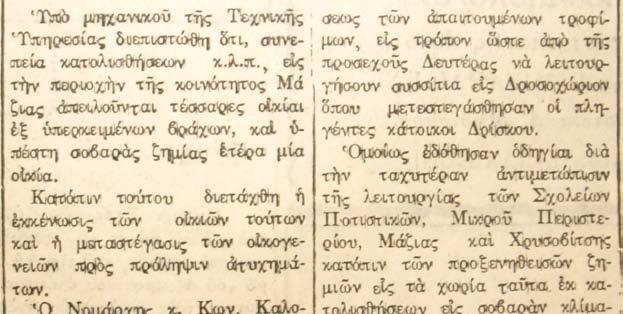 Ὑπὸ μηχανικοῦ τῆς Τεχνικῆς
Ὑπηρεσίας διεπιστώθη ὅτι, συνε-
πείᾳ κατολισθήσεων κ.λ.π., εἰς
τὴν περιοχὴν τῆς κοινότητος Μά
ζιας ἀπειλοῦνται τέσσαρες οἰκίαι
ἐξ ὑπερκειμένων βράχων, καὶ ὑ-
πέστη σοβαρὰς ζημίας ἑτέρα μία
οἰκία.
Κατόπιν τούτου διετάχθη ἡ
ἐκκένωσις τῶν οἰκιῶν τούτων
καὶ ἡ μεταστέγασις τῶν οἰκογε-
νειῶν πρὸς πρόληψιν ἀτυχημά-
των.
Ὁ Νομάρχης κ. Κων. Καλο-
σεως τῶν ἀπαιτουμένων τροφί-
μων, εἰς τρόπον ὥστε ἀπὸ τῆς
προσεχοῦς Δευτέρας νὰ λειτουρ-
γήσουν συσσίτια εἰς Δροσοχώριον
ὅπου μετεστεγάσθησαν οἱ πλη-
γέντες κάτοικοι Δρίσκου.
Ὁμοίως ἐδόθησαν ὁδηγίαι διὰ
τὴν ταχυτέραν ἀντιμετώπισιν
τῆς λειτουργίας τῶν Σχολείων
Ποτιστικῶν, Μικροῦ Περιστε-
ρίου, Μάζιας καὶ Χρυσοβίτσης
κατόπιν τῶν προξενηθεισῶν ζη-
μιῶν εἰς τὰ χωρία ταῦτα ἐκ κα-
τολισθήσεων εἰς σοβαρὰν κλίμα-